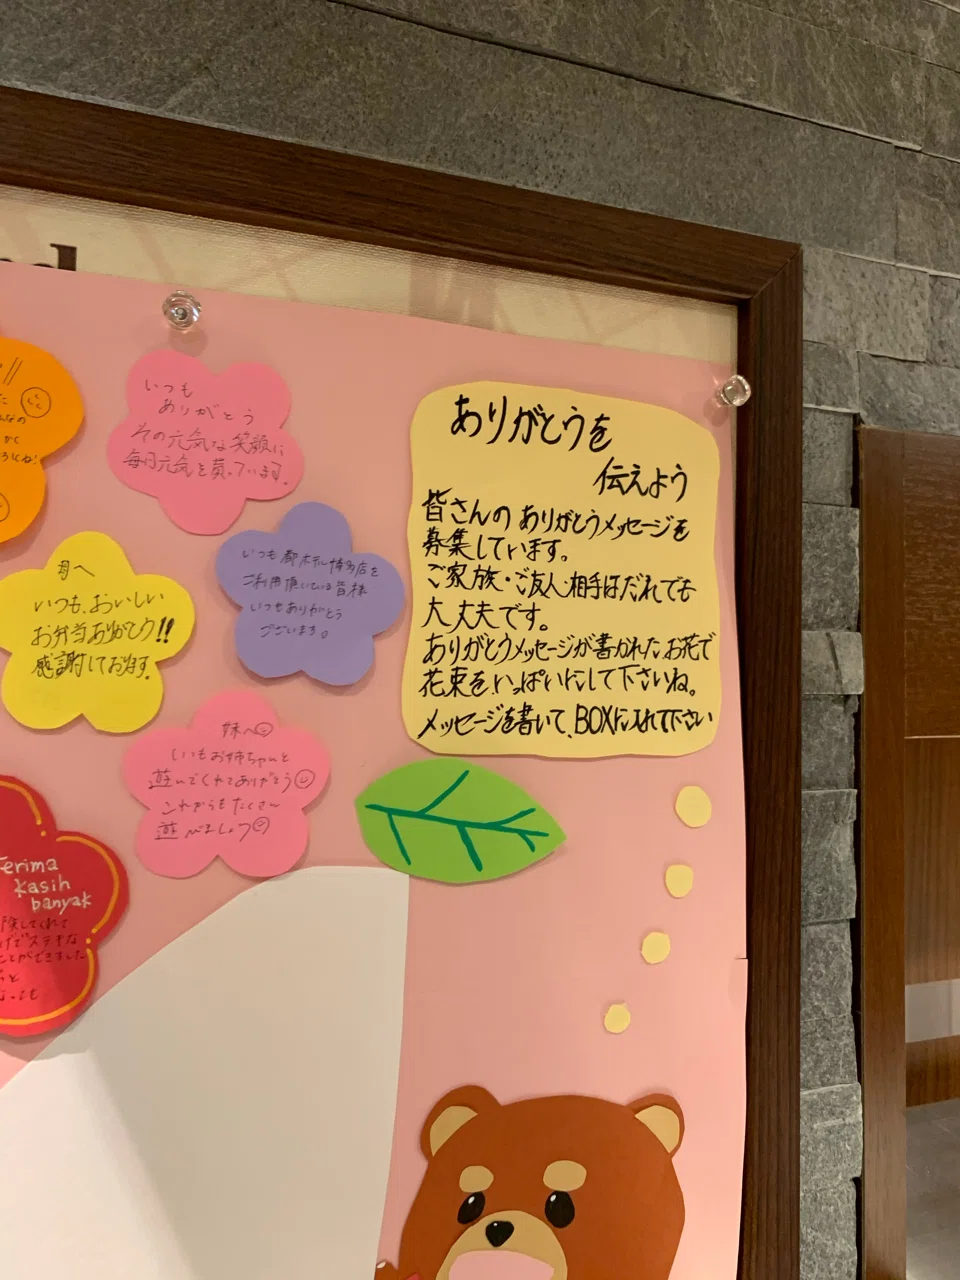 いつも
ありがとう
その元気な笑顔に
毎日元気を貰っています。
ありがとうを
伝えよう
皆さんのありがとうメッセージを
募集しています。
ご家族・ご友人・相手はだれでも
大丈夫です。
ありがとうメッセージが書かれたお花で
花束をいっぱいにして下さいね。
メッセージを書いて、BOXに入れて下さい
いつも都ホテル博多店を
ご利用頂いている皆様
いつもありがとう
ございます。
母へ
いつも、おいしい
お弁当ありがとう!!
感謝しております。
妹へ
いもお姉ちゃんと
遊んでくれてありがとう
これからもたくさん
遊べましょう
Terima
kasih
banyak